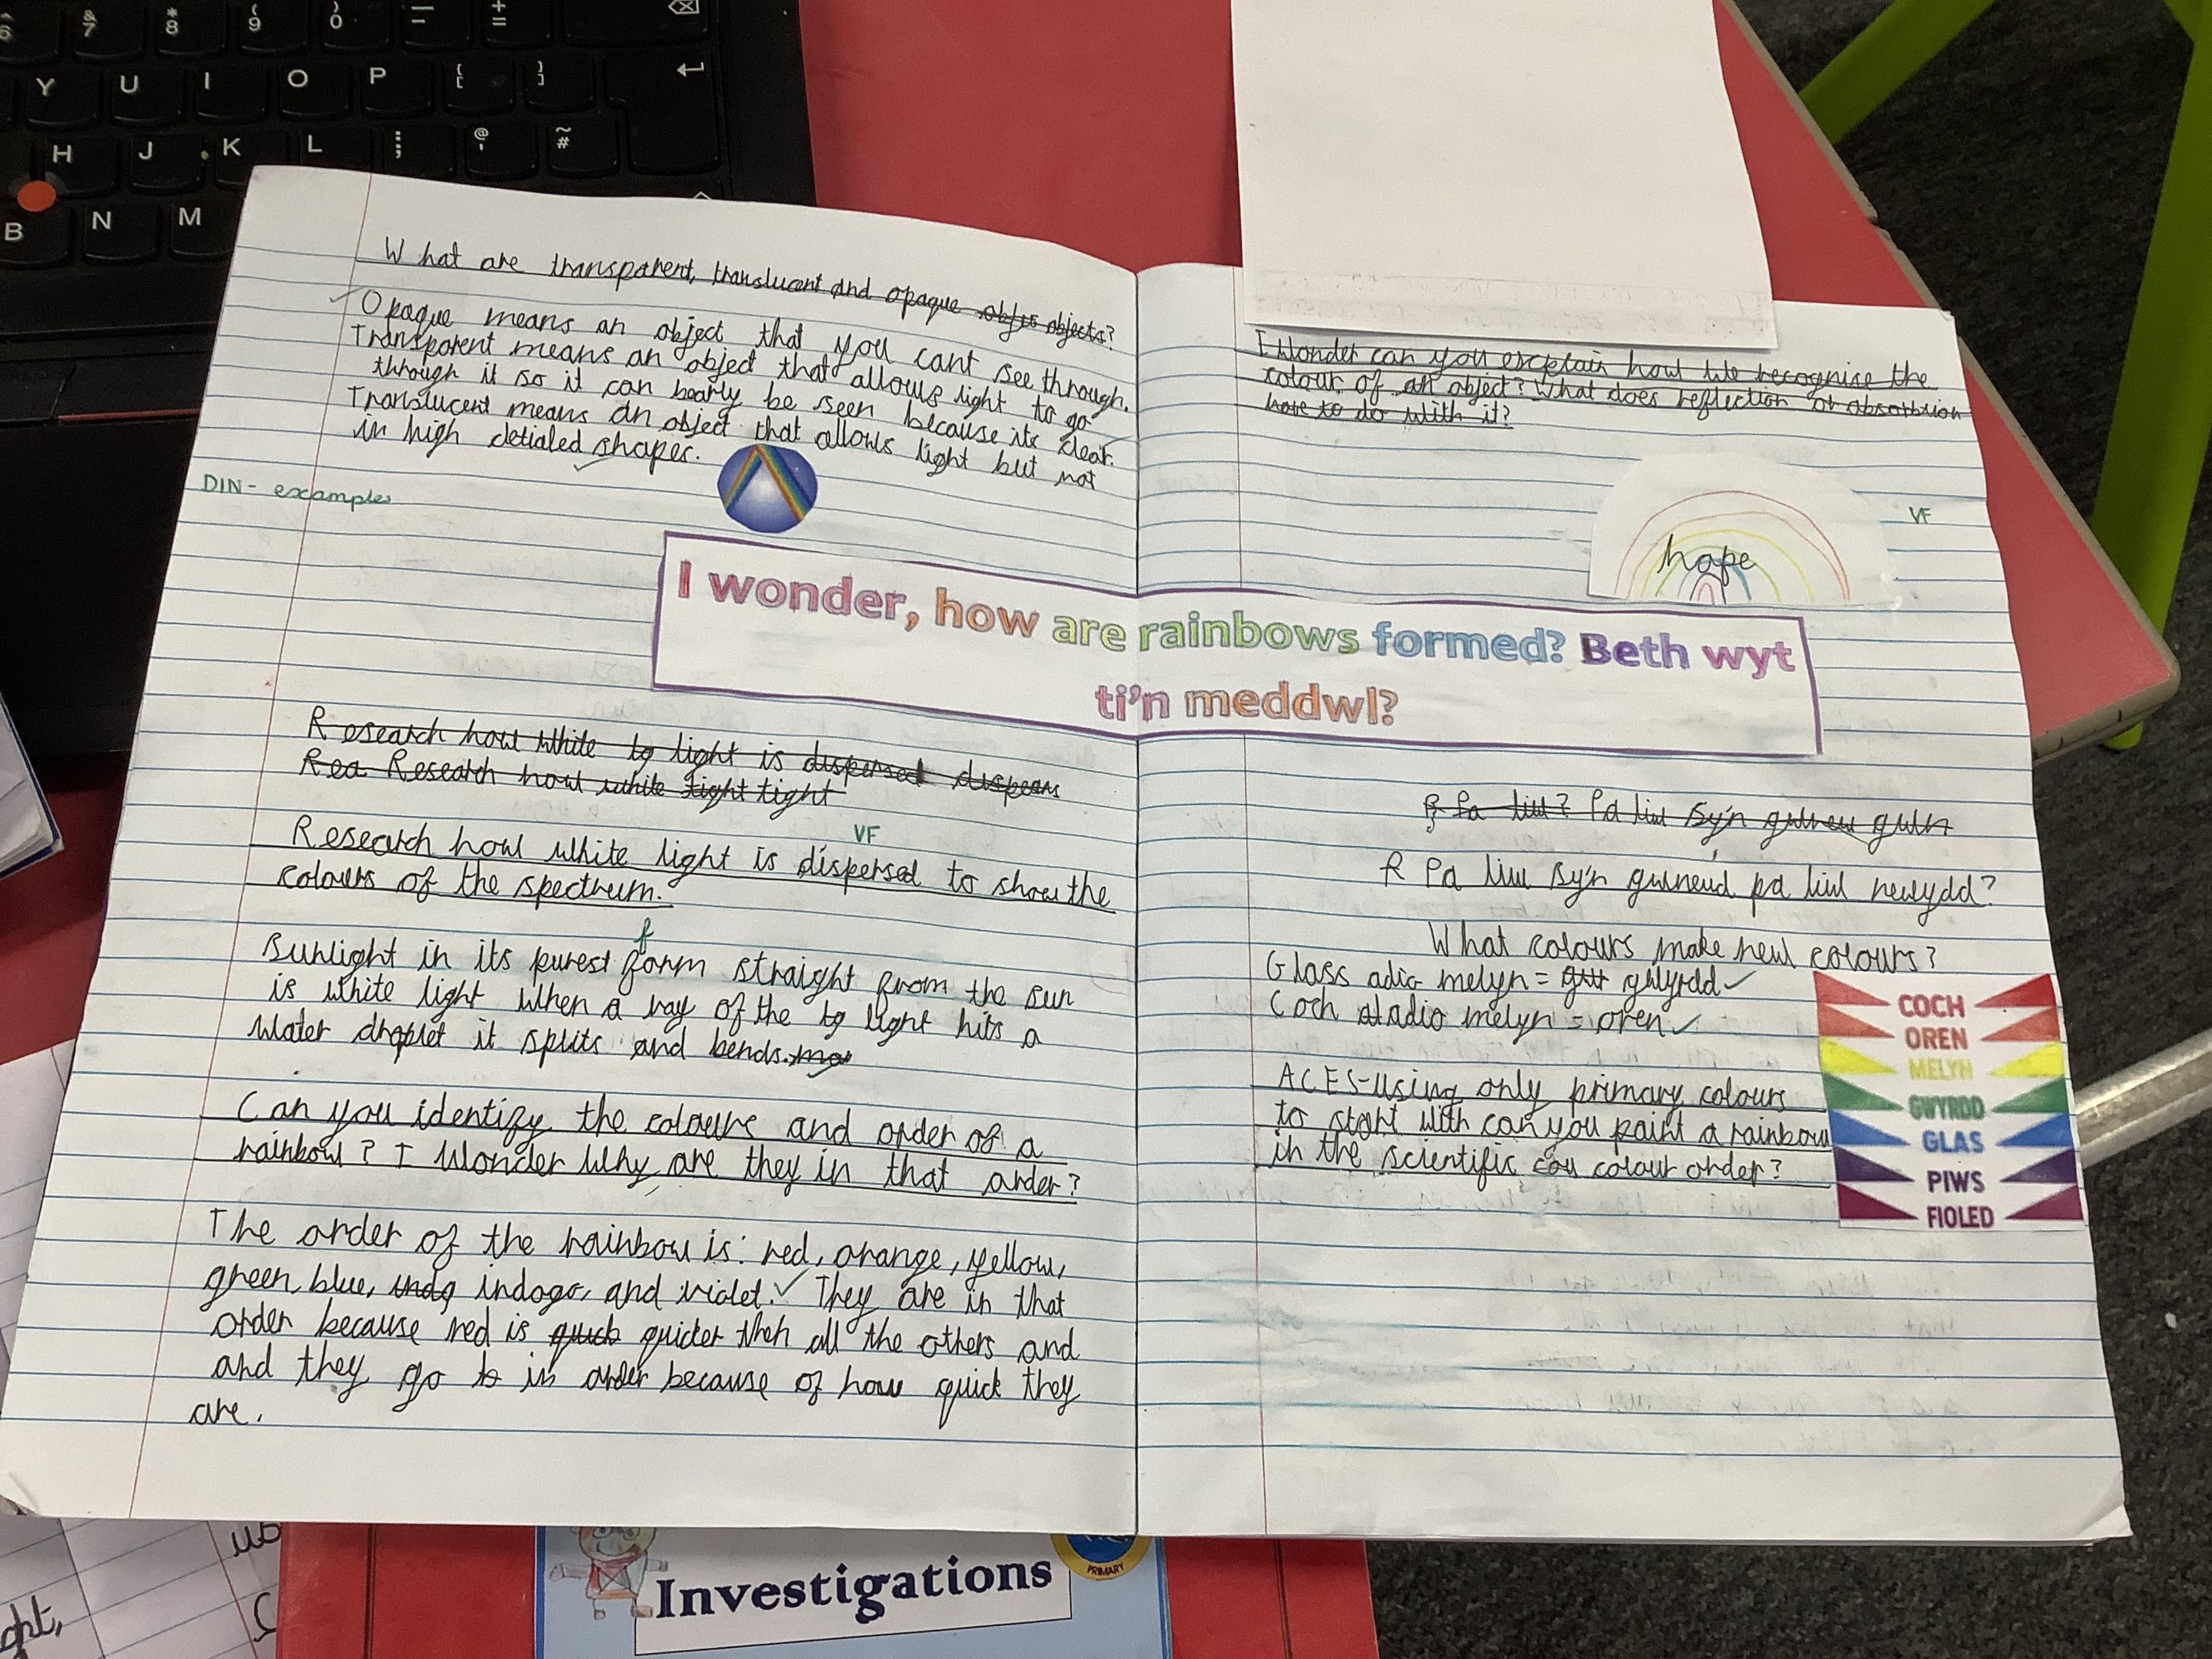 What are transparent, translucent and opaque objects?
Opaque means an object that you cant see through.
Transparent means an object that allows light to go
through it so it can bearly be seen because its clear.
Translucent means an object that allows light but not
in high detialed shapes.
DIN - examples
I wonder, how are rainbows formed? Beth wyt
ti'n meddwl?
Research how white lig light is dispersed dispears
Rea Research how white tight tight
VF
Research how white light is dispersed to show the
colours of the spectrum.
f
Sunlight in its purest form straight from the sun
is white light when a ray of the lig light hits a
water droplet it splits and bends.
Can you identify the colours and order of a
rainbow? I wonder why are they in that order?
The order of the rainbow is: red, orange, yellow,
green, blue, indg indogo, and violet. They are in that
order because red is quick quicker then all the others and
and they go in order because of how quick they
are.
I wonder can you explain how we recognise the
colour of an object? What does reflection or absorbtion
have to do with it?
VF
hope
Pa liw? Pa liw sy'n
Pa liw sy'n gwneud pa liw newydd?
What colours make new colours?
Glass adio melyn = gwyrdd
Coch adio melyn = oren
ACES-using only primary colours
to start with can you paint a rainbow
in the scientific cou colour order?
COCH
OREN
MELYN
GWYRDD
GLAS
PIWS
FIOLED
Investigations
PRIMARY
6 & 7 * 8 ( 9 ) 0 _ - + =
Y U I O P { [ } ]
H J K L : ; @ ' ~ #
B N M
ght,